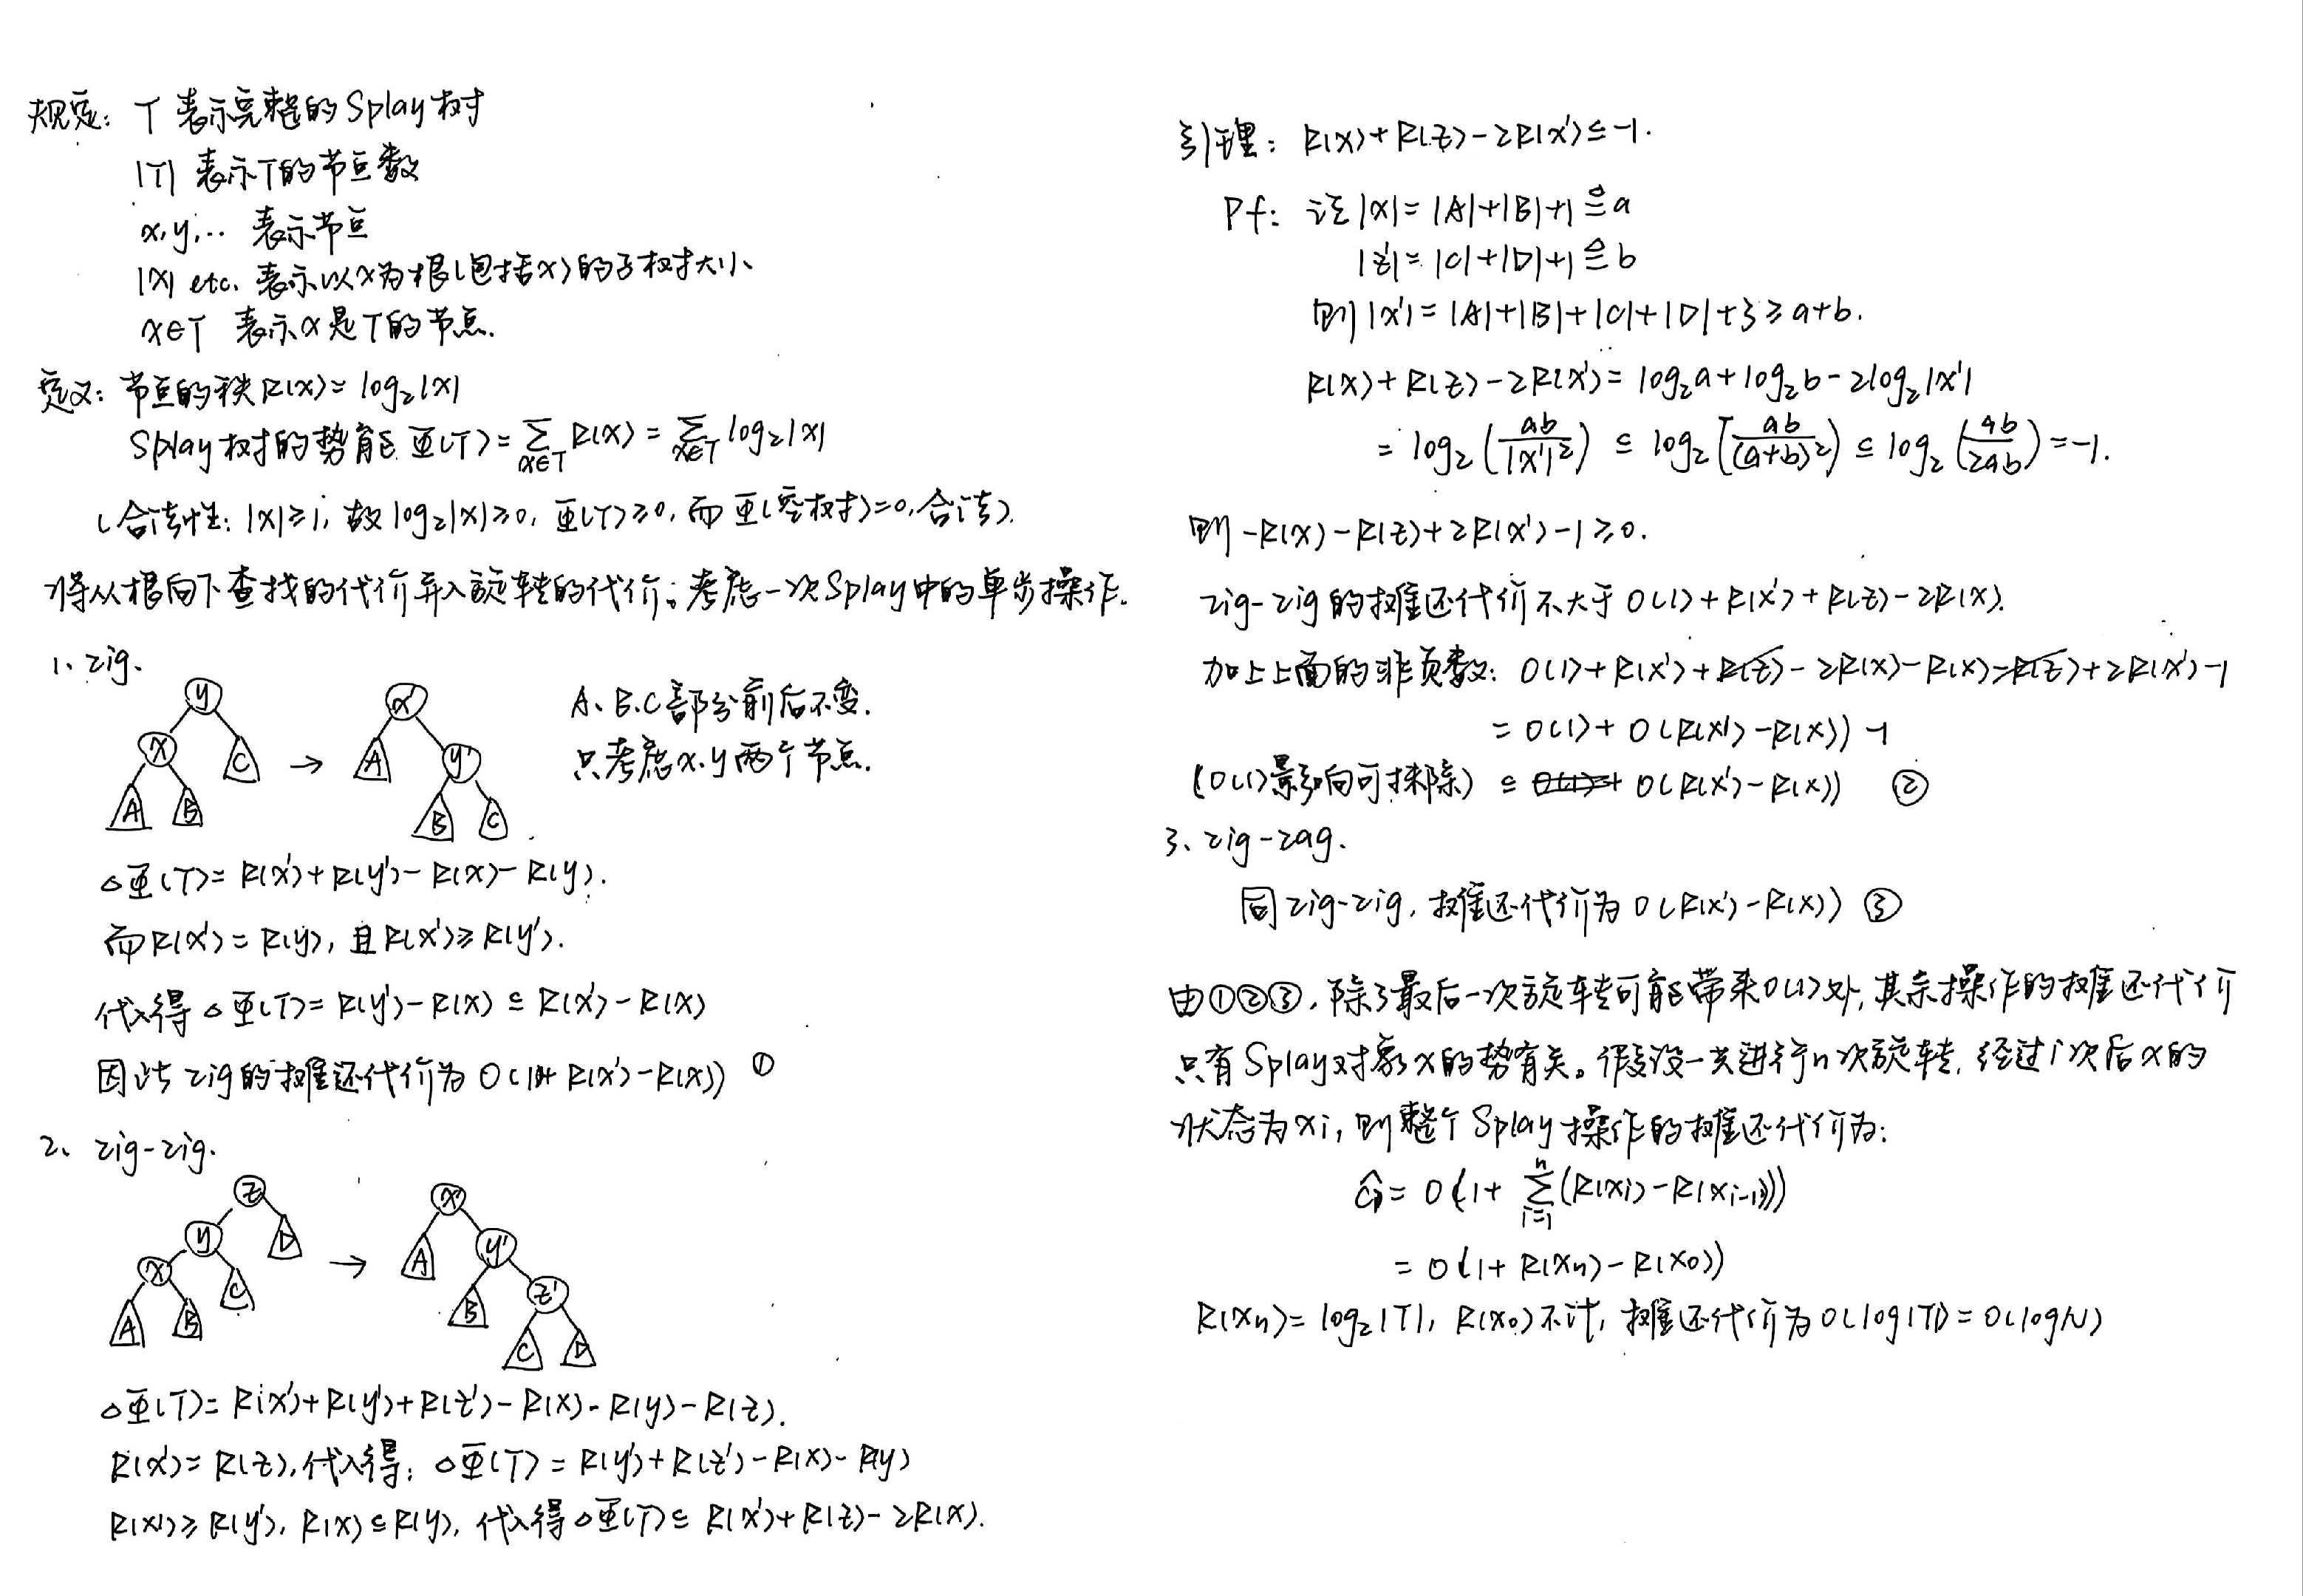 规定: T 表示完整的 Splay 树
|T| 表示T的节点数
x,y,… 表示节点
|x| etc. 表示以x为根(包括x)的子树大小
x∈T 表示x是T的节点.
定义: 节点的秩R(x)= log₂|x|
Splay树的势能 Φ(T)= ∑_{x∈T} R(x) = ∑_{x∈T} log₂|x|
(合法性: |x|≥1, 故 log₂|x|≥0, Φ(T)≥0, 而 Φ(空树)=0, 合法).
将从根向下查找的代价并入旋转的代价;考虑一次Splay中的单步操作.
1、zig.
y
x
C
A
B
→
x'
A
y'
B
C
A、B、C部分前后不变.
只考虑x、y两个节点.
△Φ(T)= R(x')+R(y')-R(x)-R(y).
而R(x')=R(y), 且R(x')≥R(y').
代入得△Φ(T)=R(y')-R(x)≤R(x')-R(x)
因此zig的摊还代价为 O(1+R(x')-R(x)) ①
2、zig-zig.
z
y
D
x
C
A
B
→
x'
A
y'
B
z'
C
D
△Φ(T)=R(x')+R(y')+R(z')-R(x)-R(y)-R(z).
R(x')=R(z),代入得: △Φ(T)=R(y')+R(z')-R(x)-R(y)
R(x')≥R(y'), R(x)≤R(y), 代入得△Φ(T)≤ R(x')+R(z')-2R(x).
引理: R(x)+R(z')-2R(x')≤-1.
Pf: 记|x|=|A|+|B|+1≜a
|z'|=|C|+|D|+1≜b
则|x'|=|A|+|B|+|C|+|D|+3≥a+b.
R(x)+R(z')-2R(x')=log₂a+log₂b-2log₂|x'|
= log₂(ab/|x'|²) ≤ log₂(ab/(a+b)²) ≤ log₂(ab/2ab)=-1.
则-R(x)-R(z')+2R(x')-1≥0.
zig-zig的摊还代价不大于 O(1)+R(x')+R(z')-2R(x).
加上上面的非负数: O(1)+R(x')+R(z')-2R(x)-R(x)-R(z')+2R(x')-1
= O(1)+O(R(x')-R(x))-1
(O(1)影响可抹除) ≤ O(1)+ O(R(x')-R(x)) ②
3、zig-zag.
同zig-zig, 摊还代价为 O(R(x')-R(x)) ③
由①②③, 除了最后一次旋转可能带来O(1)外, 其余操作的摊还代价
只有Splay对象x的势有关。假设一共进行n次旋转, 经过i次后x的
状态为xi, 则整个Splay操作的摊还代价为:
ĉᵢ= O(1+ ∑_{i=1}^{n}(R(xi)-R(xi-1)))
= O(1+R(xn)-R(x0))
R(xn)=log₂|T|, R(x0)不计, 摊还代价为O(log|T|)=O(logN)